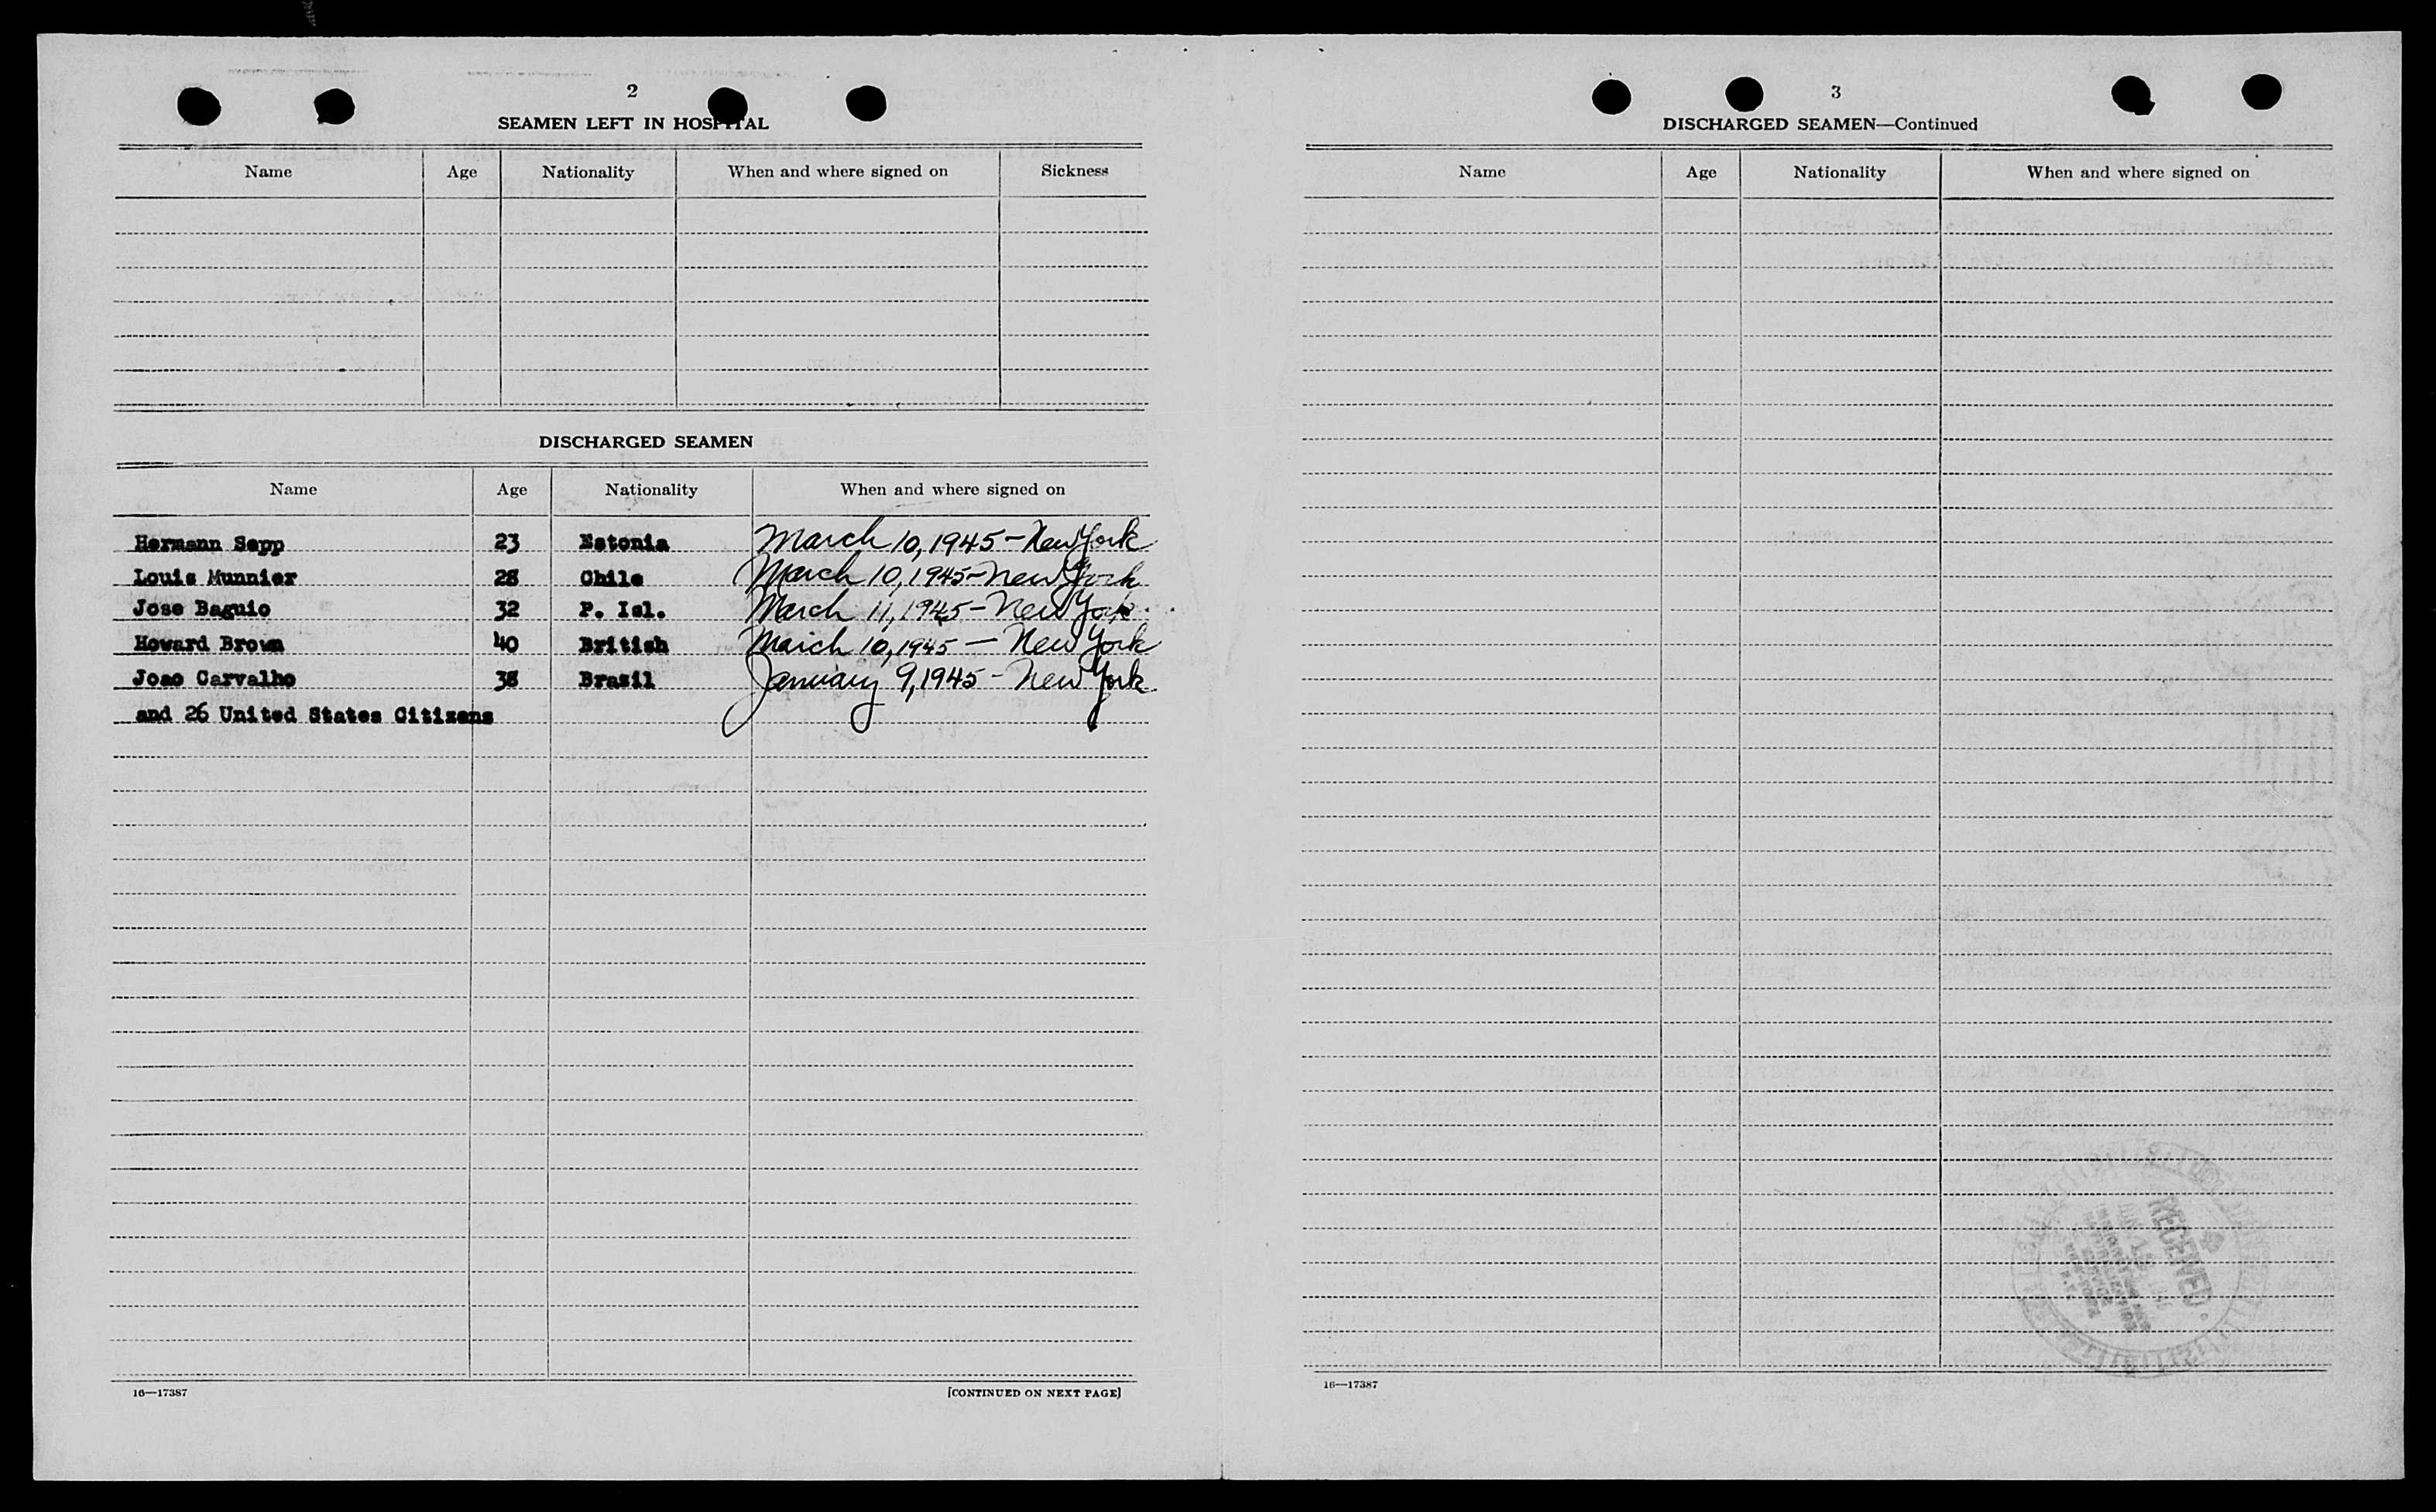 2
SEAMEN LEFT IN HOSPITAL
Name Age Nationality When and where signed on Sickness
DISCHARGED SEAMEN
Name Age Nationality When and where signed on
Hermann Sepp 23 Estonia March 10, 1945 - New York
Louis Munnier 28 Chile March 10, 1945 - New York
Jose Baguio 32 P. Isl. March 11, 1945 - New York
Howard Brown 40 British March 10, 1945 — New York
Joao Carvalho 38 Brazil January 9, 1945 - New York
and 26 United States Citizens
16—17387 [CONTINUED ON NEXT PAGE]
3
DISCHARGED SEAMEN—Continued
Name Age Nationality When and where signed on
RECEIVED
16—17387